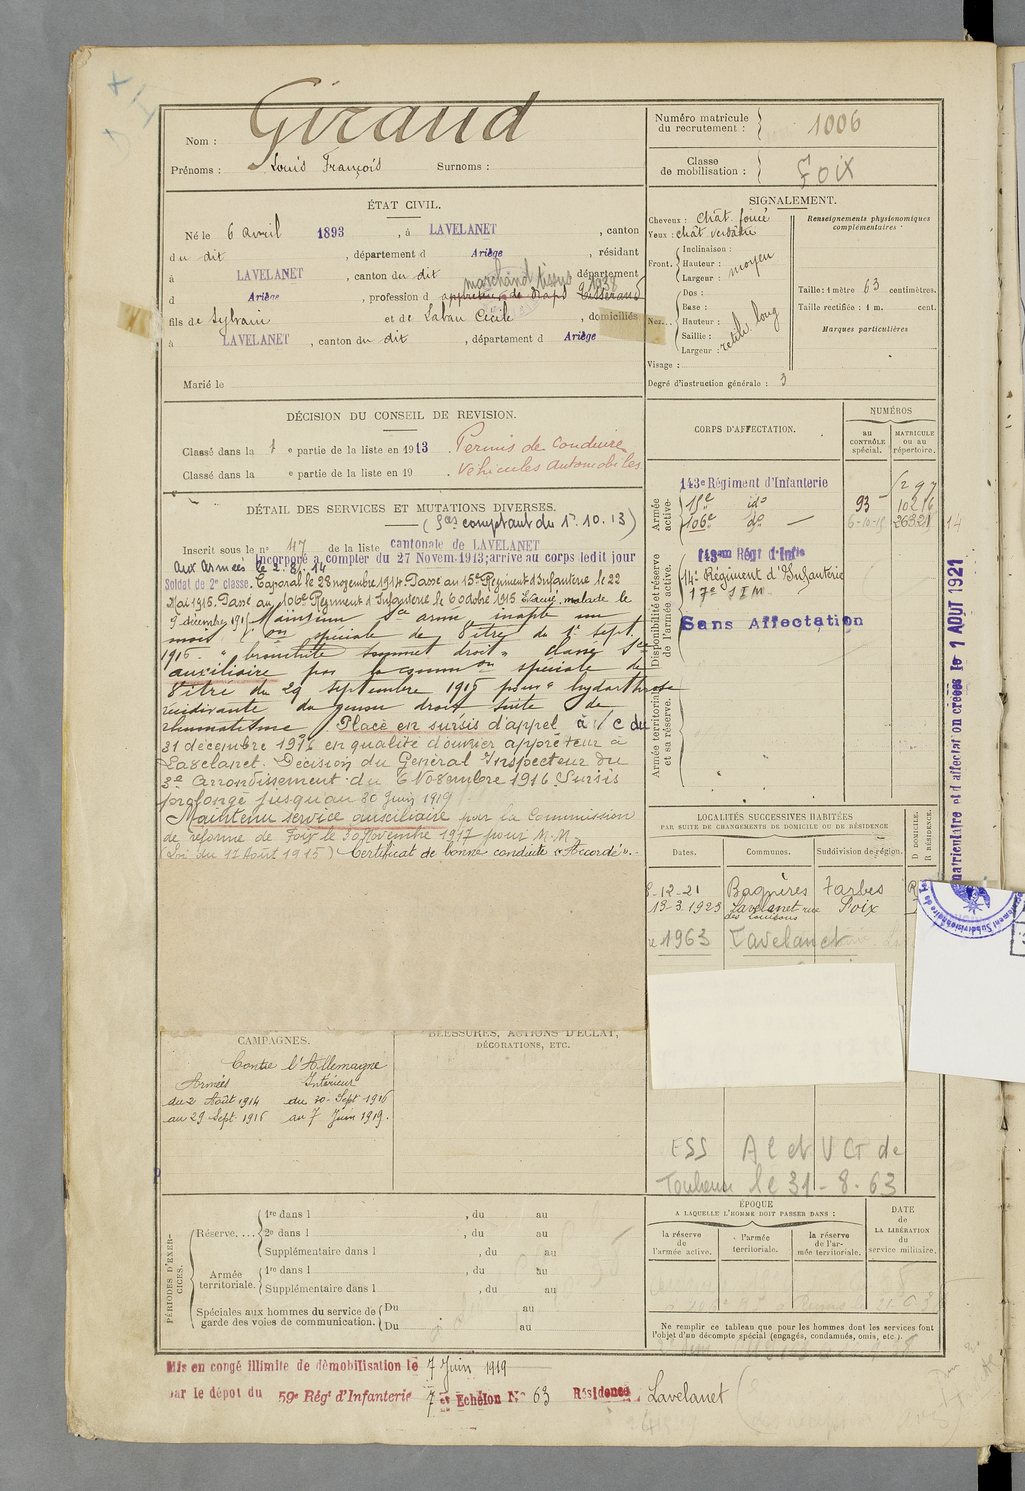 Nom : Giraud
Prénoms : Louis François Surnoms :
Numéro matricule
du recrutement : 1006
Classe
de mobilisation : Foix
ÉTAT CIVIL.
Né le 6 avril 1893, à LAVELANET, canton
du dit, département d Ariège, résidant
à LAVELANET, canton du dit département
marchand tissus 1938
d Ariège, profession d apprêteur de drap Tisserand
fils de Sylvain et de Laban Cécile, domiciliés
à LAVELANET, canton du dit, département d Ariège
Marié le
SIGNALEMENT.
Cheveux : chât. foncé
Yeux : chât verdâtre
Front. Inclinaison :
Hauteur : moyen
Largeur :
Nez... Dos :
Base :
Hauteur :
Saillie : rectil. long
Largeur :
Visage :
Degré d'instruction générale : 3
Renseignements physionomiques
complémentaires :
Taille : 1 mètre 63 centimètres.
Taille rectifiée : 1 m. cent.
Marques particulières
DÉCISION DU CONSEIL DE REVISION.
Classé dans la 1 e partie de la liste en 1913. Permis de Conduire
Classé dans la e partie de la liste en 19 . Véhicules Automobiles
DÉTAIL DES SERVICES ET MUTATIONS DIVERSES.
(3 ans comptant du 1r. 10. 13)
Inscrit sous le n° 47 de la liste cantonale de LAVELANET
Incorporé a compter du 27 Novem. 1913; arrivé au corps ledit jour
Aux Armées le 2. 8. 14
Soldat de 2e classe. Caporal le 28 novembre 1914. Passé au 15e Régiment d'Infanterie le 22
Mai 1915. Passé au 106e Régiment d'Infanterie le 6 octobre 1915 Evacué malade le
9 décembre 1915 Maintenu Sce armé inapte un
mois con spéciale de Vitré du 1r sept.
1916. "bronchite sommet droit" Classé Sce
auxiliaire par la common spéciale de
Vitré du 29 septembre 1916 pour "hydarthrose
récidivante du genou droit suite de
rhumatisme. Placé en sursis d'appel à/c du
31 décembre 1916 en qualité d'ouvrier apprêteur à
Lavelanet. Décision du Général Inspecteur du
3e Arrondissement du 6 Novembre 1916. Sursis
prolongé jusqu'au 30 Juin 1919
Maintenu service auxiliaire par la Commission
de réforme de Foix le 30 Novembre 1917 pour M.M.
(Loi du 17 Août 1915) Certificat de bonne conduite "Accordé".
CORPS D'AFFECTATION.
NUMÉROS
au
CONTRÔLE
spécial.
MATRICULE
ou au
répertoire.
Armée
active.
143e Régiment d'Infanterie
15e id° 93 10216
106e d° 6-10-15 26321
14
Disponibilité et réserve
de l'armée active.
143eme Régt d'Infie
14e Régiment d'Infanterie
17e SIM
Sans Affectation
Armée territoriale
et sa réserve.
matriculaire et d'affectation créées le 1 AOUT 1921
LOCALITÉS SUCCESSIVES HABITÉES
PAR SUITE DE CHANGEMENTS DE DOMICILE OU DE RÉSIDENCE
D DOMICILE.
R RÉSIDENCE.
Dates. Communes. Subdivision de région.
8-12-21 Bagnères Tarbes R
19-3-1923 Lavelanet rue Foix
1963 Lavelanet
ESS AC et VCT de
Toulouse le 31-8-63
CAMPAGNES.
Contre l'Allemagne
Armées Intérieur
du 2 Août 1914 du 30 Sept 1916
au 29 Sept. 1916 au 7 Juin 1919.
BLESSURES, ACTIONS D'ÉCLAT,
DÉCORATIONS, ETC.
PÉRIODES D'EXER-
CICES.
Réserve.... 1re dans l , du au
2e dans l , du au
Supplémentaire dans l , du au
Armée
territoriale. 1re dans l , du au
Supplémentaire dans l , du au
Spéciales aux hommes du service de
garde des voies de communication. Du au
Du au
ÉPOQUE
A LAQUELLE L'HOMME DOIT PASSER DANS :
la réserve
de
l'armée active.
l'armée
territoriale.
la réserve
de l'ar-
mée territoriale.
DATE
de
LA LIBÉRATION
du
service militaire.
Ne remplir ce tableau que pour les hommes dont les services font
l'objet d'un décompte spécial (engagés, condamnés, omis, etc.).
Mis en congé illimité de démobilisation le 7 Juin 1919
par le dépôt du 59e Régt d'Infanterie 7e Echelon N° 63 Résidence, Lavelanet